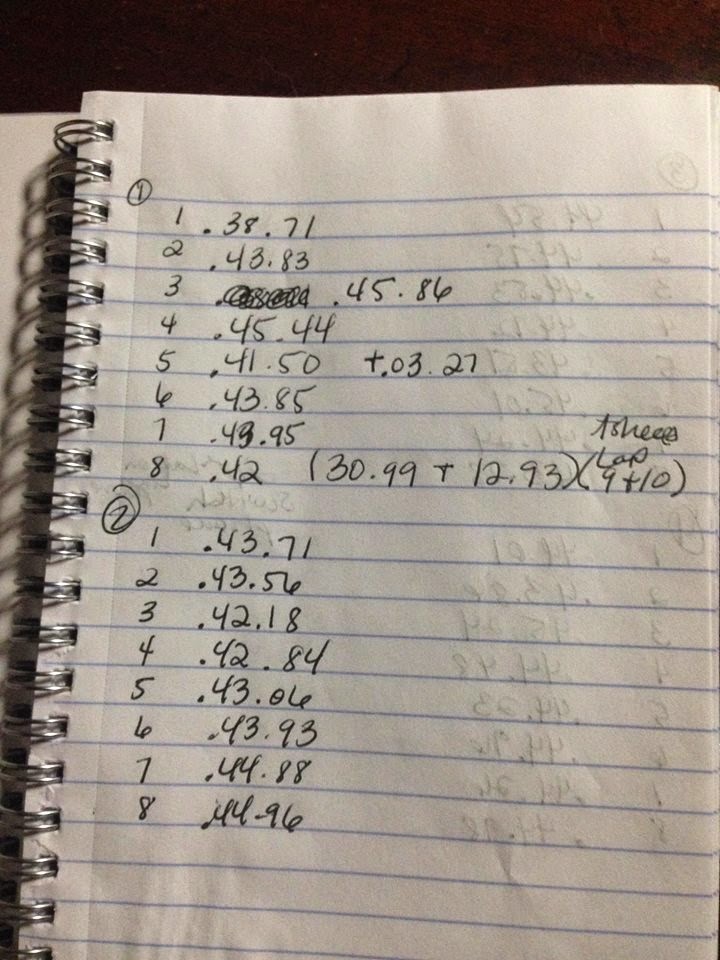 ①
1 .38.71
2 .43.83
3 .45.86
4 .45.44
5 .41.50 +.03.27
6 .43.85
7 .43.95
8 .42 (30.99 + 12.93)(Lap 9+10)
②
1 .43.71
2 .43.56
3 .42.18
4 .42.84
5 .43.06
6 .43.93
7 .44.88
8 .44.96